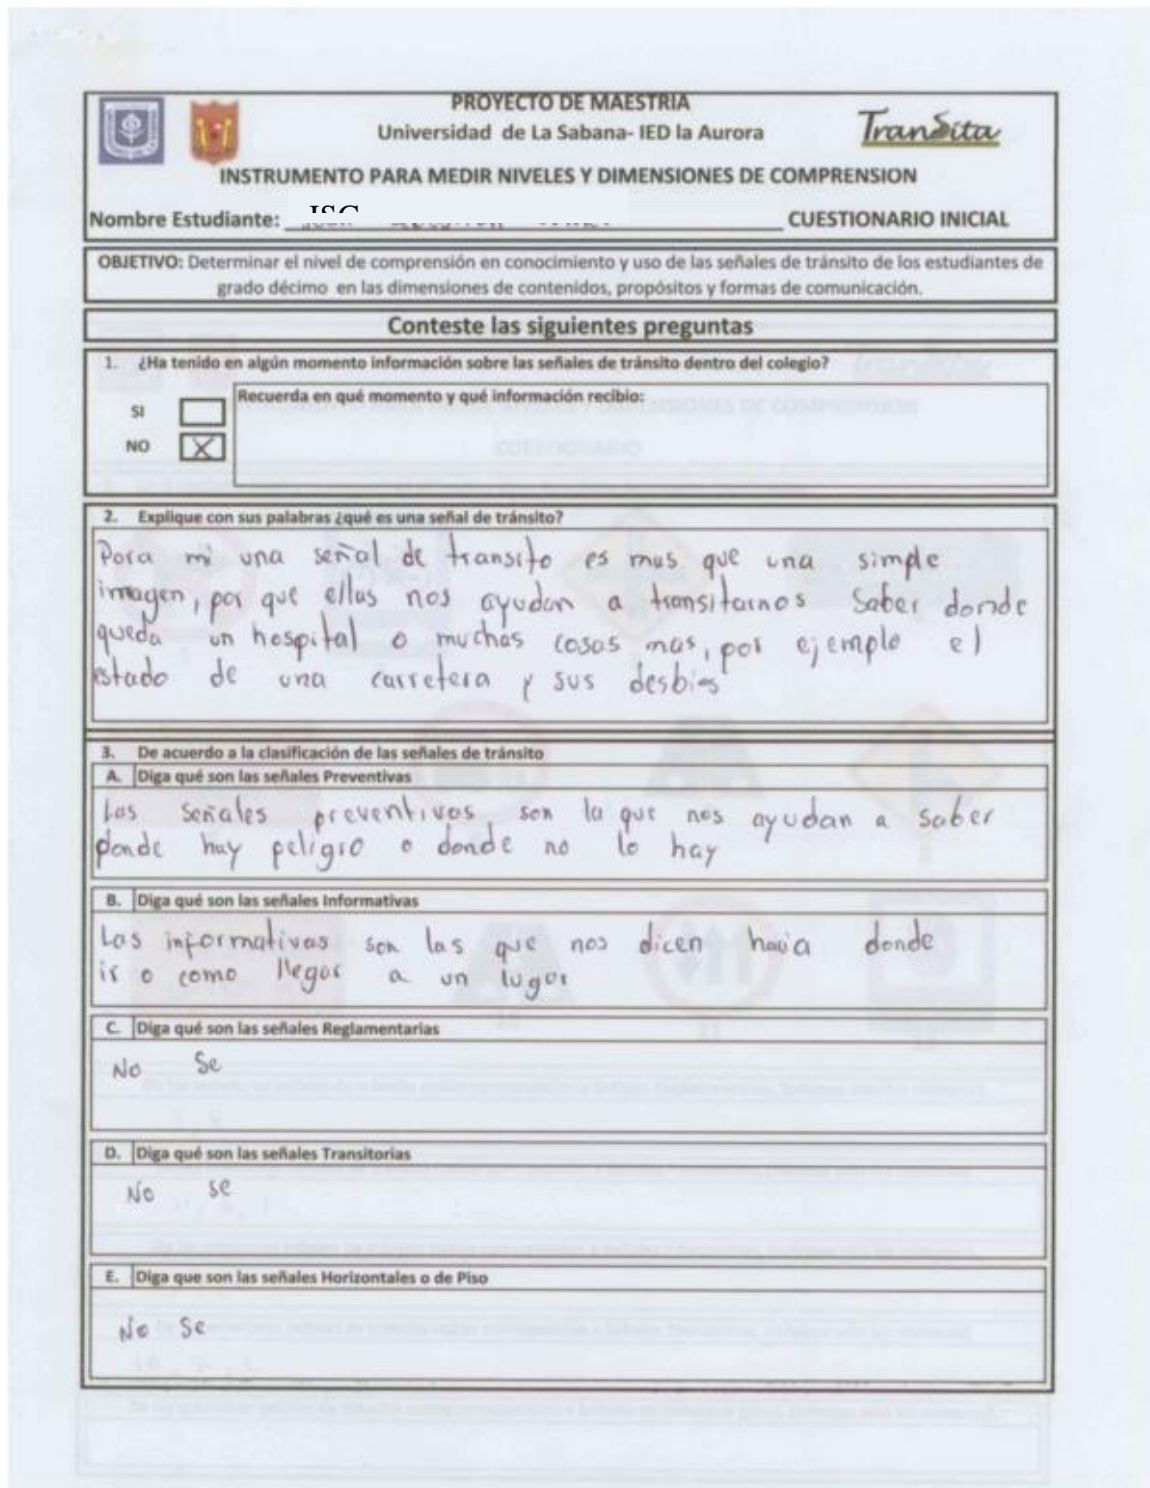 PROYECTO DE MAESTRIA
Universidad de La Sabana- IED la Aurora
TranSita
INSTRUMENTO PARA MEDIR NIVELES Y DIMENSIONES DE COMPRENSION
Nombre Estudiante: JSG CUESTIONARIO INICIAL
OBJETIVO: Determinar el nivel de comprensión en conocimiento y uso de las señales de tránsito de los estudiantes de
grado décimo en las dimensiones de contenidos, propósitos y formas de comunicación.
Conteste las siguientes preguntas
1. ¿Ha tenido en algún momento información sobre las señales de tránsito dentro del colegio?
Recuerda en qué momento y qué información recibio:
SI
NO X
2. Explique con sus palabras ¿qué es una señal de tránsito?
Para mi una señal de transito es mas que una simple
imagen, por que ellas nos ayudan a transitarnos Saber donde
queda un hospital o muchas cosas mas, por ejemplo el
estado de una carretera y sus desbios
3. De acuerdo a la clasificación de las señales de tránsito
A. Diga qué son las señales Preventivas
Las Señales preventivas son la que nos ayudan a saber
donde hay peligro o donde no lo hay
B. Diga qué son las señales Informativas
Las informativas son las que nos dicen hacia donde
ir o como llegar a un lugar
C. Diga qué son las señales Reglamentarias
No Se
D. Diga qué son las señales Transitorias
No se
E. Diga que son las señales Horizontales o de Piso
No Se